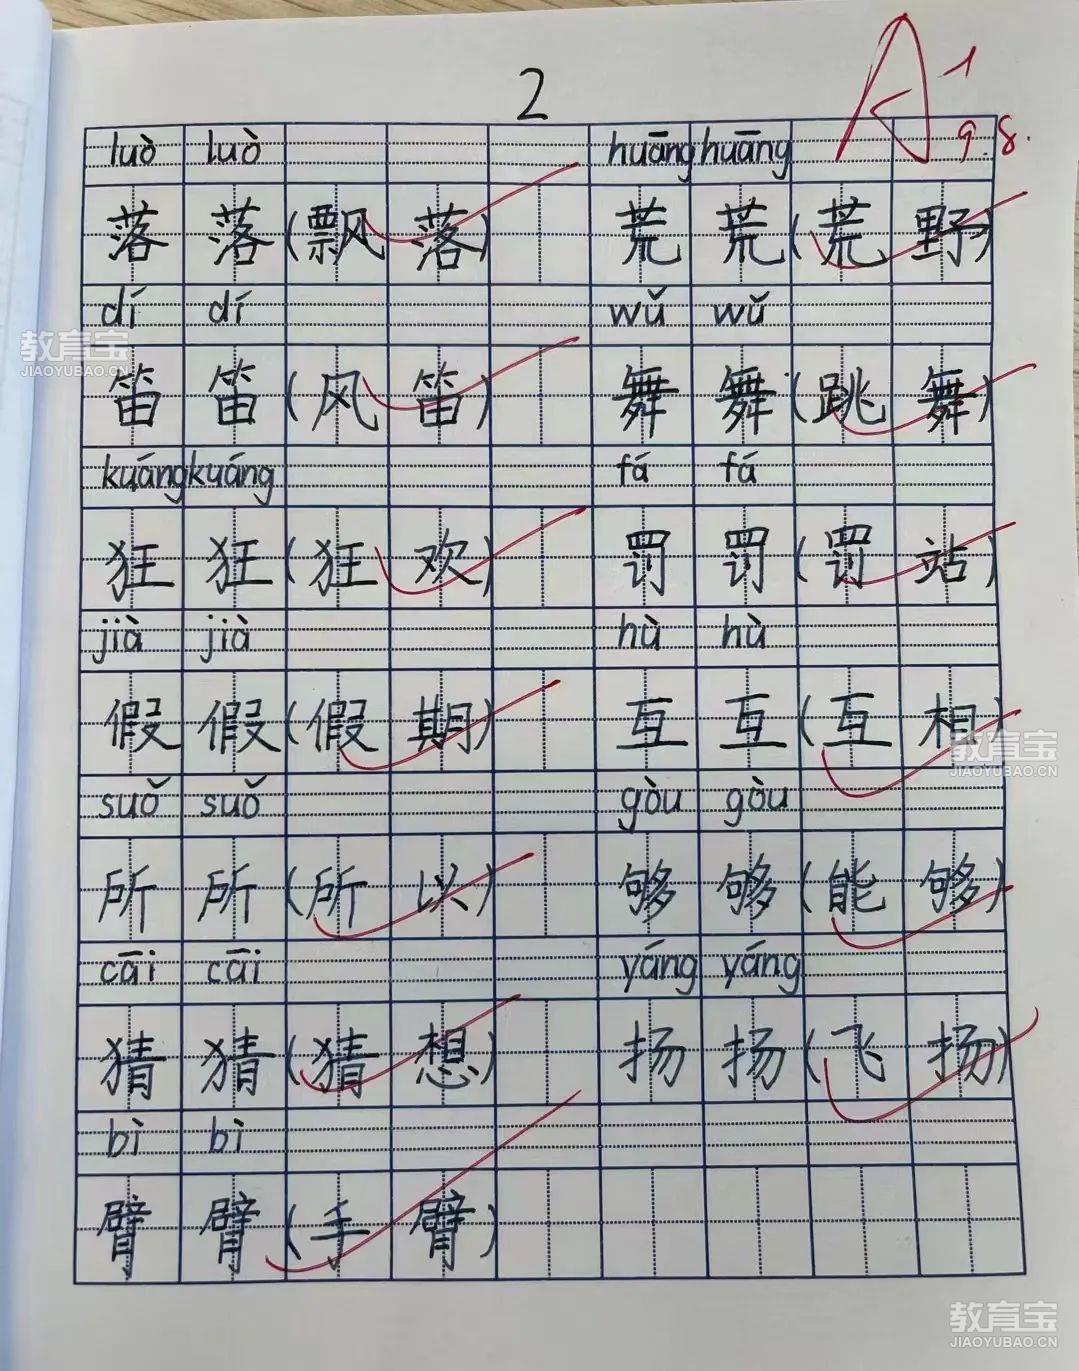 2
A⁻¹
9.8.
luò luò huāng huāng
落 落(飘 落) 荒 荒(荒 野)
dí dí wǔ wǔ
笛 笛(风 笛) 舞 舞(跳 舞)
kuáng kuáng fá fá
狂 狂(狂 欢) 罚 罚(罚 站)
jià jià hù hù
假 假(假 期) 互 互(互 相)
suǒ suǒ gòu gòu
所 所(所 以) 够 够(能 够)
cāi cāi yáng yáng
猜 猜(猜 想) 扬 扬(飞 扬)
bì bì
臂 臂(手 臂)
教育宝
JIAOYUBAO.CN
教育宝
JIAOYUBAO.CN
教育宝
JIAOYUBAO.CN